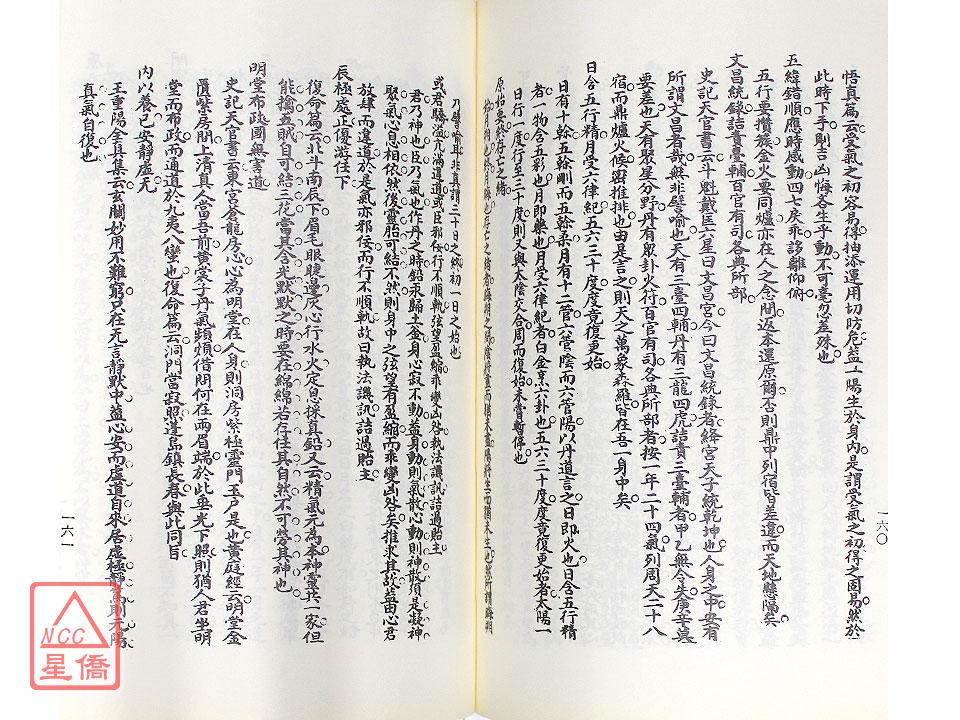 悟真篇云受氣之初容易得抽添運用切防危蓋一陽生於身內是謂受氣之初得之固易然於
此時下手剛吉凶悔吝生乎動不可毫忽差殊也
五緯錯順應時感動四七乖戾誃離仰俯
五行要攢簇金火要同爐亦在人之念間返本還原爾否則鼎中列宿皆差違而天地懸隔矣
文昌統錄詰責臺輔百官有司各典所部
史記天官書云斗魁戴匡六星曰文昌宮今曰文昌統錄者絳宮天子統乾坤也人身之中安有
所謂文昌者哉無非譬喻也天有三臺四輔丹有三龍四虎詰責三臺輔者甲乙無令失庚辛
要差也天有眾星分野丹有眾卦火符百官有司各典所部者按一年二十四氣列周天二十八
宿而鼎爐火候密推排也由是言之則天之萬象森羅皆在吾一身中矣
日含五行精月受六律紀五六三十度度竟復更始
日有十餘五餘剛而五餘柔月有十二管六管陰而六管陽以丹道言之日即火也日含五行精
者一物含五彩也月即藥也月受六律紀者白金烹六卦也五六三十度度竟復更始者太陽一
日行一度行至三十度則又與太陰交合周而復始未嘗暫停也
原始要終存亡之緒
乃譬喻耳非真謂三十日之終初一日之始也
或君驕溢亢滿違道或臣邪佞行不順軌弦望盈縮乖變凶咎執法譏訊詰過貽主
君乃神也臣乃氣也作丹之時鉛汞歸土釜身心寂不動蓋身動則氣散心動則神散須是凝神
聚氣心息相依然後靈胎可結不然則身中之弦望有盈縮而乖變凶咎矣推求其故蓋由心君
放肆而違道於是氣亦邪佞而行不順軌故曰執法譏訊詰過貽主
辰極處正優游任下
復命篇云北斗南辰下眉毛眼睫邊灰心行水火定息採真鉛又云精氣元為本神靈共一家但
能擒五賊自可結三花當其含光默默之時要在綿綿若存任其自然不可勞其神也
明堂布政國無害道
史記天官書云東宮蒼龍房心心為明堂在人身則洞房紫極靈門玉戶是也黃庭經云明堂金
匱紫房間上清真人當吾前黃裳子丹氣頻煩借問何在兩眉端於此垂光下照則猶人君坐明
堂而布政而通道於九夷八蠻也復命篇云洞門當寂照蓬島鎮長春與此同旨
內以養己安靜虛无
王重陽全真集云玄關妙用不難窮只在无言靜默中蓋心安而虛道自來居虛極靜篤則元陽
真氣自復也
一六〇
一六一
NCC
星僑